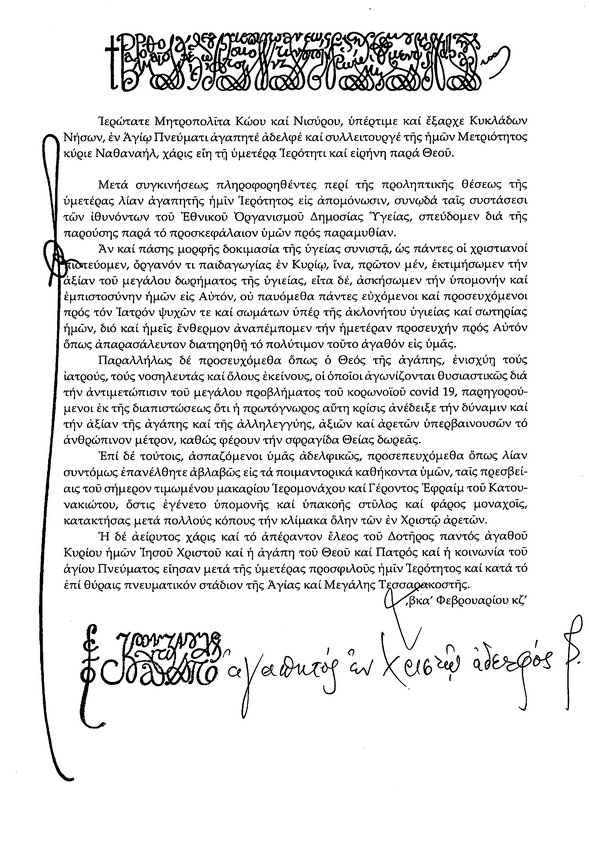 Ἱερώτατε Μητροπολῖτα Κώου καί Νισύρου, ὑπέρτιμε καί ἔξαρχε Κυκλάδων
Νήσων, ἐν Ἁγίῳ Πνεύματι ἀγαπητέ ἀδελφέ καί συλλειτουργέ τῆς ἡμῶν Μετριότητος
κύριε Ναθαναήλ, χάρις εἴη τῇ ὑμετέρᾳ Ἱερότητι καί εἰρήνη παρά Θεοῦ.
Μετά συγκινήσεως πληροφορηθέντες περί τῆς προληπτικῆς θέσεως τῆς
ὑμετέρας λίαν ἀγαπητῆς ἡμῖν Ἱερότητος εἰς ἀπομόνωσιν, συνῳδά ταῖς συστάσεσι
τῶν ἰθυνόντων τοῦ Ἐθνικοῦ Ὀργανισμοῦ Δημοσίας Ὑγείας, σπεύδομεν διά τῆς
παρούσης παρά τό προσκεφάλαιον ὑμῶν πρός παραμυθίαν.
Ἄν καί πάσης μορφῆς δοκιμασία τῆς ὑγείας συνιστᾷ, ὡς πάντες οἱ χριστιανοί
πιστεύομεν, ὄργανόν τι παιδαγωγίας ἐν Κυρίῳ, ἵνα, πρῶτον μέν, ἐκτιμήσωμεν τήν
ἀξίαν τοῦ μεγάλου δωρήματος τῆς ὑγιείας, εἶτα δέ, ἀσκήσωμεν τήν ὑπομονήν καί
ἐμπιστοσύνην ἡμῶν εἰς Αὐτόν, οὐ παυόμεθα πάντες εὐχόμενοι καί προσευχόμενοι
πρός τόν Ἰατρόν ψυχῶν τε καί σωμάτων ὑπέρ τῆς ἀκλονήτου ὑγιείας καί σωτηρίας
ἡμῶν, διό καί ἡμεῖς ἔνθερμον ἀναπέμπομεν τήν ἡμετέραν προσευχήν πρός Αὐτόν
ὅπως ἀπαρασάλευτον διατηρηθῇ τό πολύτιμον τοῦτο ἀγαθόν εἰς ὑμᾶς.
Παραλλήλως δέ προσευχόμεθα ὅπως ὁ Θεός τῆς ἀγάπης, ἐνισχύῃ τούς
ἰατρούς, τούς νοσηλευτάς καί ὅλους ἐκείνους, οἱ ὁποῖοι ἀγωνίζονται θυσιαστικῶς διά
τήν ἀντιμετώπισιν τοῦ μεγάλου προβλήματος τοῦ κορωνοϊοῦ covid 19, παρηγορού-
μενοι ἐκ τῆς διαπιστώσεως ὅτι ἡ πρωτόγνωρος αὕτη κρίσις ἀνέδειξε τήν δύναμιν καί
τήν ἀξίαν τῆς ἀγάπης καί τῆς ἀλληλεγγύης, ἀξιῶν καί ἀρετῶν ὑπερβαινουσῶν τό
ἀνθρώπινον μέτρον, καθώς φέρουν τήν σφραγίδα Θείας δωρεᾶς.
Ἐπί δέ τούτοις, ἀσπαζόμενοι ὑμᾶς ἀδελφικῶς, προσεπευχόμεθα ὅπως λίαν
συντόμως ἐπανέλθητε ἀβλαβῶς εἰς τά ποιμαντορικά καθήκοντα ὑμῶν, ταῖς πρεσβεί-
αις τοῦ σήμερον τιμωμένου μακαρίου Ἱερομονάχου καί Γέροντος Ἐφραίμ τοῦ Κατου-
νακιώτου, ὅστις ἐγένετο ὑπομονῆς καί ὑπακοῆς στῦλος καί φάρος μοναχοῖς,
κατακτήσας μετά πολλούς κόπους τήν κλίμακα ὅλην τῶν ἐν Χριστῷ ἀρετῶν.
Ἡ δέ ἀείρυτος χάρις καί τό ἀπέραντον ἔλεος τοῦ Δοτῆρος παντός ἀγαθοῦ
Κυρίου ἡμῶν Ἰησοῦ Χριστοῦ καί ἡ ἀγάπη τοῦ Θεοῦ καί Πατρός καί ἡ κοινωνία τοῦ
ἁγίου Πνεύματος εἴησαν μετά τῆς ὑμετέρας προσφιλοῦς ἡμῖν Ἱερότητος καί κατά τό
ἐπί θύραις πνευματικόν στάδιον τῆς Ἁγίας καί Μεγάλης Τεσσαρακοστῆς.
͵βκα’ Φεβρουαρίου κζ’
ἀγαπητός ἐν Χριστῷ ἀδελφός